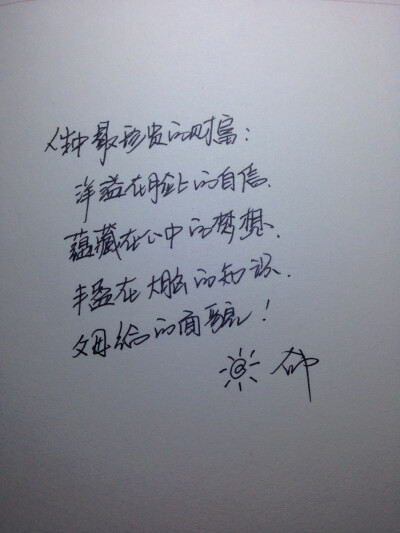 人生中最珍贵的财富:
洋溢在脸上的自信、
蕴藏在心中的梦想、
丰盈在大脑的知识、
父母给的面貌!